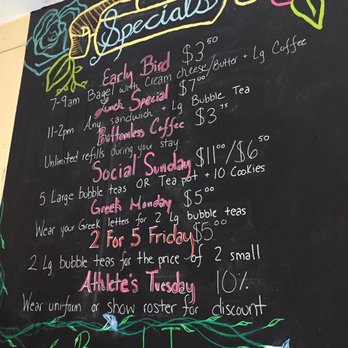 Specials
Early Bird $3.50
7-9am Bagel with Cream cheese/Butter + Lg Coffee
Lunch Special $7.00
11-2pm Any sandwich + Lg Bubble Tea
Bottomless Coffee $3.75
Unlimited refills during your stay
Social Sunday $11.00/$6.50
5 Large bubble teas OR Tea pot + 10 Cookies
Greek Monday $5.00
Wear your Greek letters for 2 Lg bubble teas
2 For 5 Friday! $5.00
2 Lg bubble teas for the price of 2 small
Athlete's Tuesday 10%
Wear uniform or show roster for discount